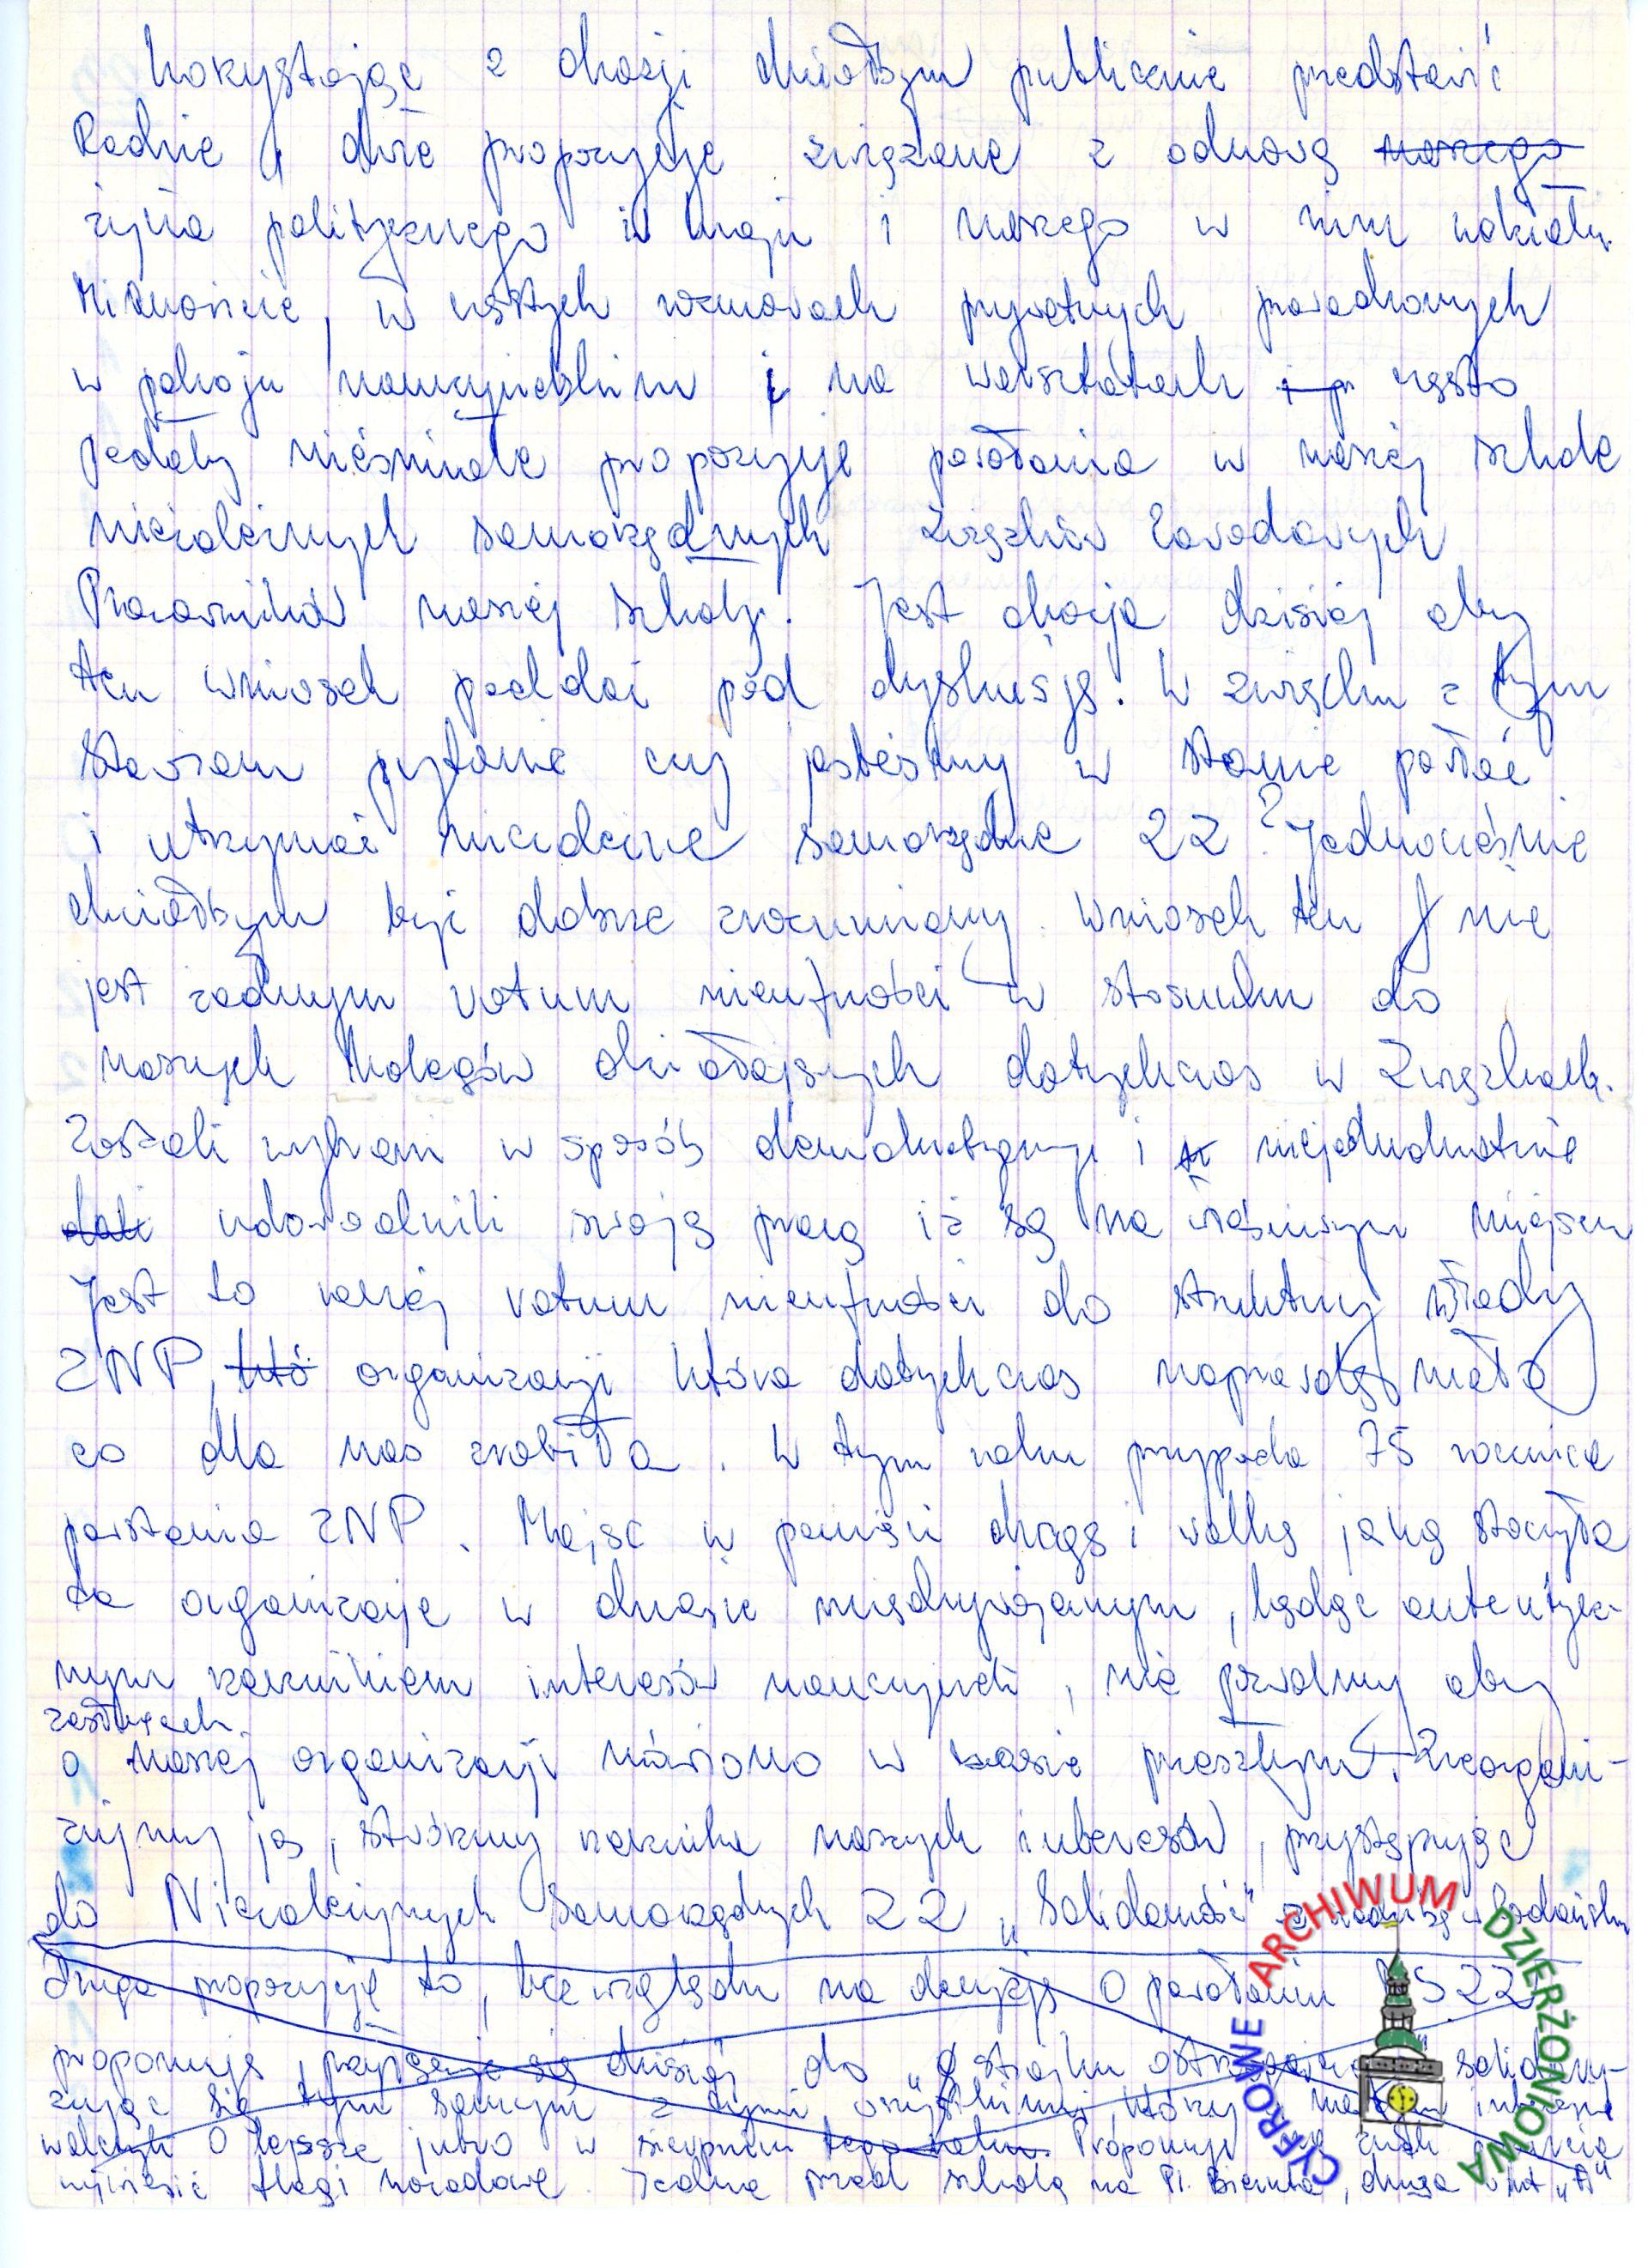 Korzystając z okazji chciałbym publicznie przedstawić
Radzie dwie propozycje związane z odnową naszego
życia politycznego w kraju i naszego w nim udziału.
Mianowicie, w ustnych rozmowach prywatnych prowadzonych
w pokoju nauczycielskim i na warsztatach i p często
padały nieśmiałe propozycje powołania w naszej szkole
niezależnych samorządnych Związków Zawodowych
Pracowników naszej szkoły. Jest okazja dzisiaj aby
ten wniosek poddać pod dyskusję. W związku z tym
stawiam pytanie czy jesteśmy w stanie powołać
i utrzymać niezależne samorządne ZZ? Jednocześnie
chciałbym być dobrze zrozumiany. Wniosek ten nie
jest żadnym votum nieufności w stosunku do
naszych kolegów działających dotychczas w Związkach.
Zostali wybrani w sposób demokratyczny i niejednokrotnie
dali udowodnili swoją pracą iż są na właściwym miejscu
Jest to raczej votum nieufności do struktury władzy
ZNP, któ organizacji która dotychczas naprawdę mało
co dla nas zrobiła. W tym roku przypada 75 rocznica
powstania ZNP. Mając w pamięci drogę i walkę jaką stoczyła
ta organizacja w okresie międzywojennym, będąc autentycz-
nym rzecznikiem interesów nauczycieli, nie pozwólmy aby
zasługach
o naszej organizacji mówiono w czasie przeszłym. Zreorgani-
zujmy ją, stwórzmy rzecznika naszych interesów, przystępując
do Niezależnych Samorządnych ZZ "Solidarność" z siedzibą w Gdańsku
Druga propozycja to, bez względu na decyzję o powołaniu NSZZ
proponuję, przyłączyć się dzisiaj do strajku solidary-
zując się tym samym z tymi wszystkimi, którzy
walczyli o lepsze jutro w sierpniu tego roku. Proponuję
wywiesić flagi narodowe. Jedną przed szkołą na Pl. Bieruta, drugą
CYFROWE ARCHIWUM DZIERŻONIOWA